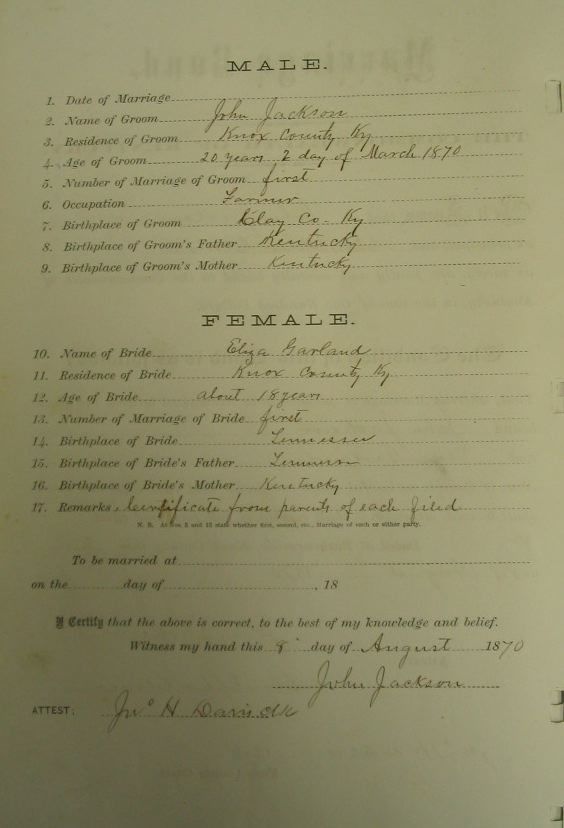 MALE.
1. Date of Marriage
2. Name of Groom John Jackson
3. Residence of Groom Knox County Ky
4. Age of Groom 20 years 2 day of March 1870
5. Number of Marriage of Groom first
6. Occupation Farmer
7. Birthplace of Groom Clay Co. Ky
8. Birthplace of Groom's Father Kentucky
9. Birthplace of Groom's Mother Kentucky
FEMALE.
10. Name of Bride Eliza Garland
11. Residence of Bride Knox County Ky
12. Age of Bride about 18 years
13. Number of Marriage of Bride first
14. Birthplace of Bride Tennessee
15. Birthplace of Bride's Father Tennessee
16. Birthplace of Bride's Mother Kentucky
17. Remarks Certificate from parents of each filed
N. B. At Nos. 5 and 13 state whether first, second, etc., Marriage of each or either party.
To be married at
on the day of , 18
I Certify that the above is correct, to the best of my knowledge and belief.
Witness my hand this 8 day of August 1870
John Jackson
ATTEST: Jno H Davis Clk